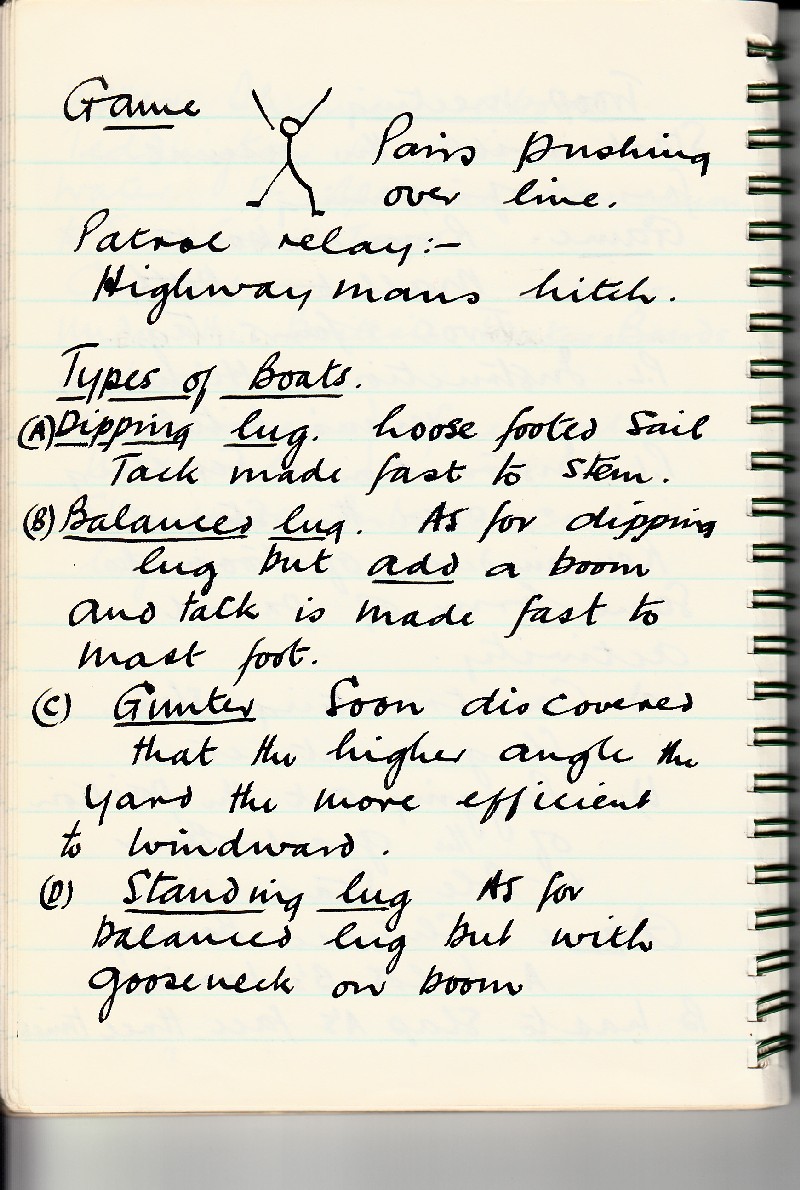 Game
Pairs pushing
over line.
Patrol relay:-
Highwaymans hitch.
Types of Boats.
(A) Dipping lug. Loose footed sail
Tack made fast to stem.
(B) Balanced lug. As for dipping
lug but add a boom
and tack is made fast to
mast foot.
(C) Gunter Soon discovered
that the higher angle the
yard the more efficient
to windward.
(D) Standing lug As for
balanced lug but with
gooseneck on boom